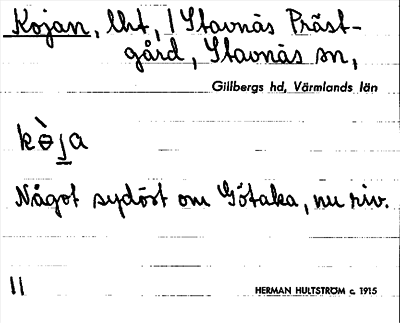 Kojan, lht, / Stavnäs Präst-
gård, Stavnäs sn,
Gillbergs hd, Värmlands län
kɵ̀ja
Något sydöst om Götaka, nu riv.
11
HERMAN HULTSTRÖM c. 1915